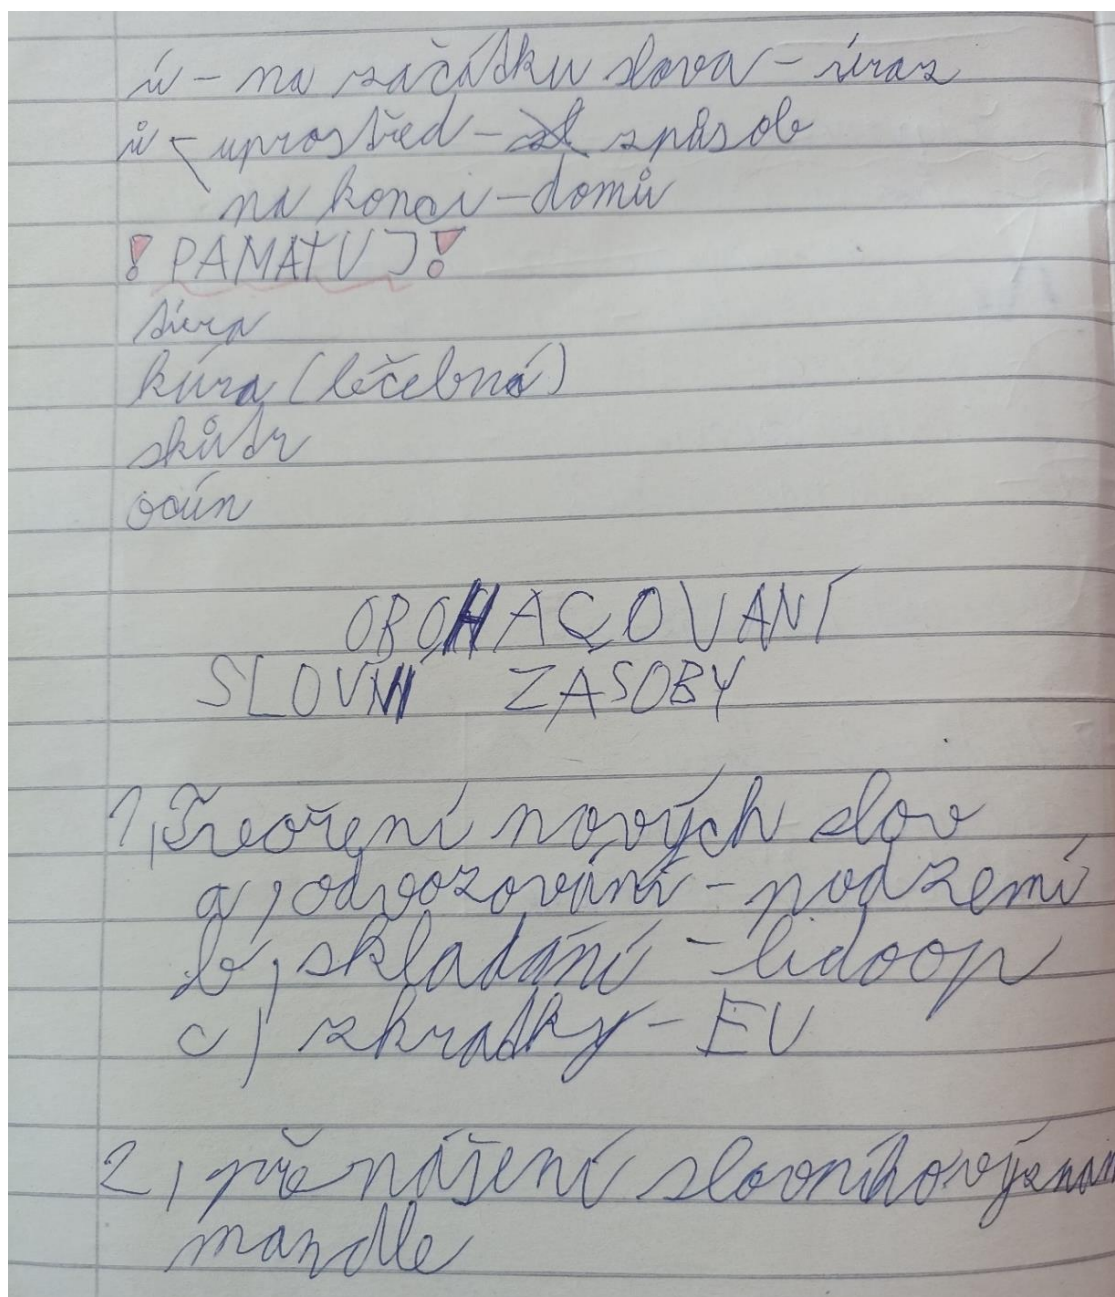 ú – na začátku slova – úraz
ů – uprostřed – způsob
na konci – domů
! PAMATUJ !
túra
kúra (léčebná)
skútr
ocún
OBOHACOVÁNÍ
SLOVNÍ ZÁSOBY
1, Tvoření nových slov
a, odvozování – podzemí
b, skládání – lidoop
c) zkratky – EU
2, přenášení slovníkový
mandle